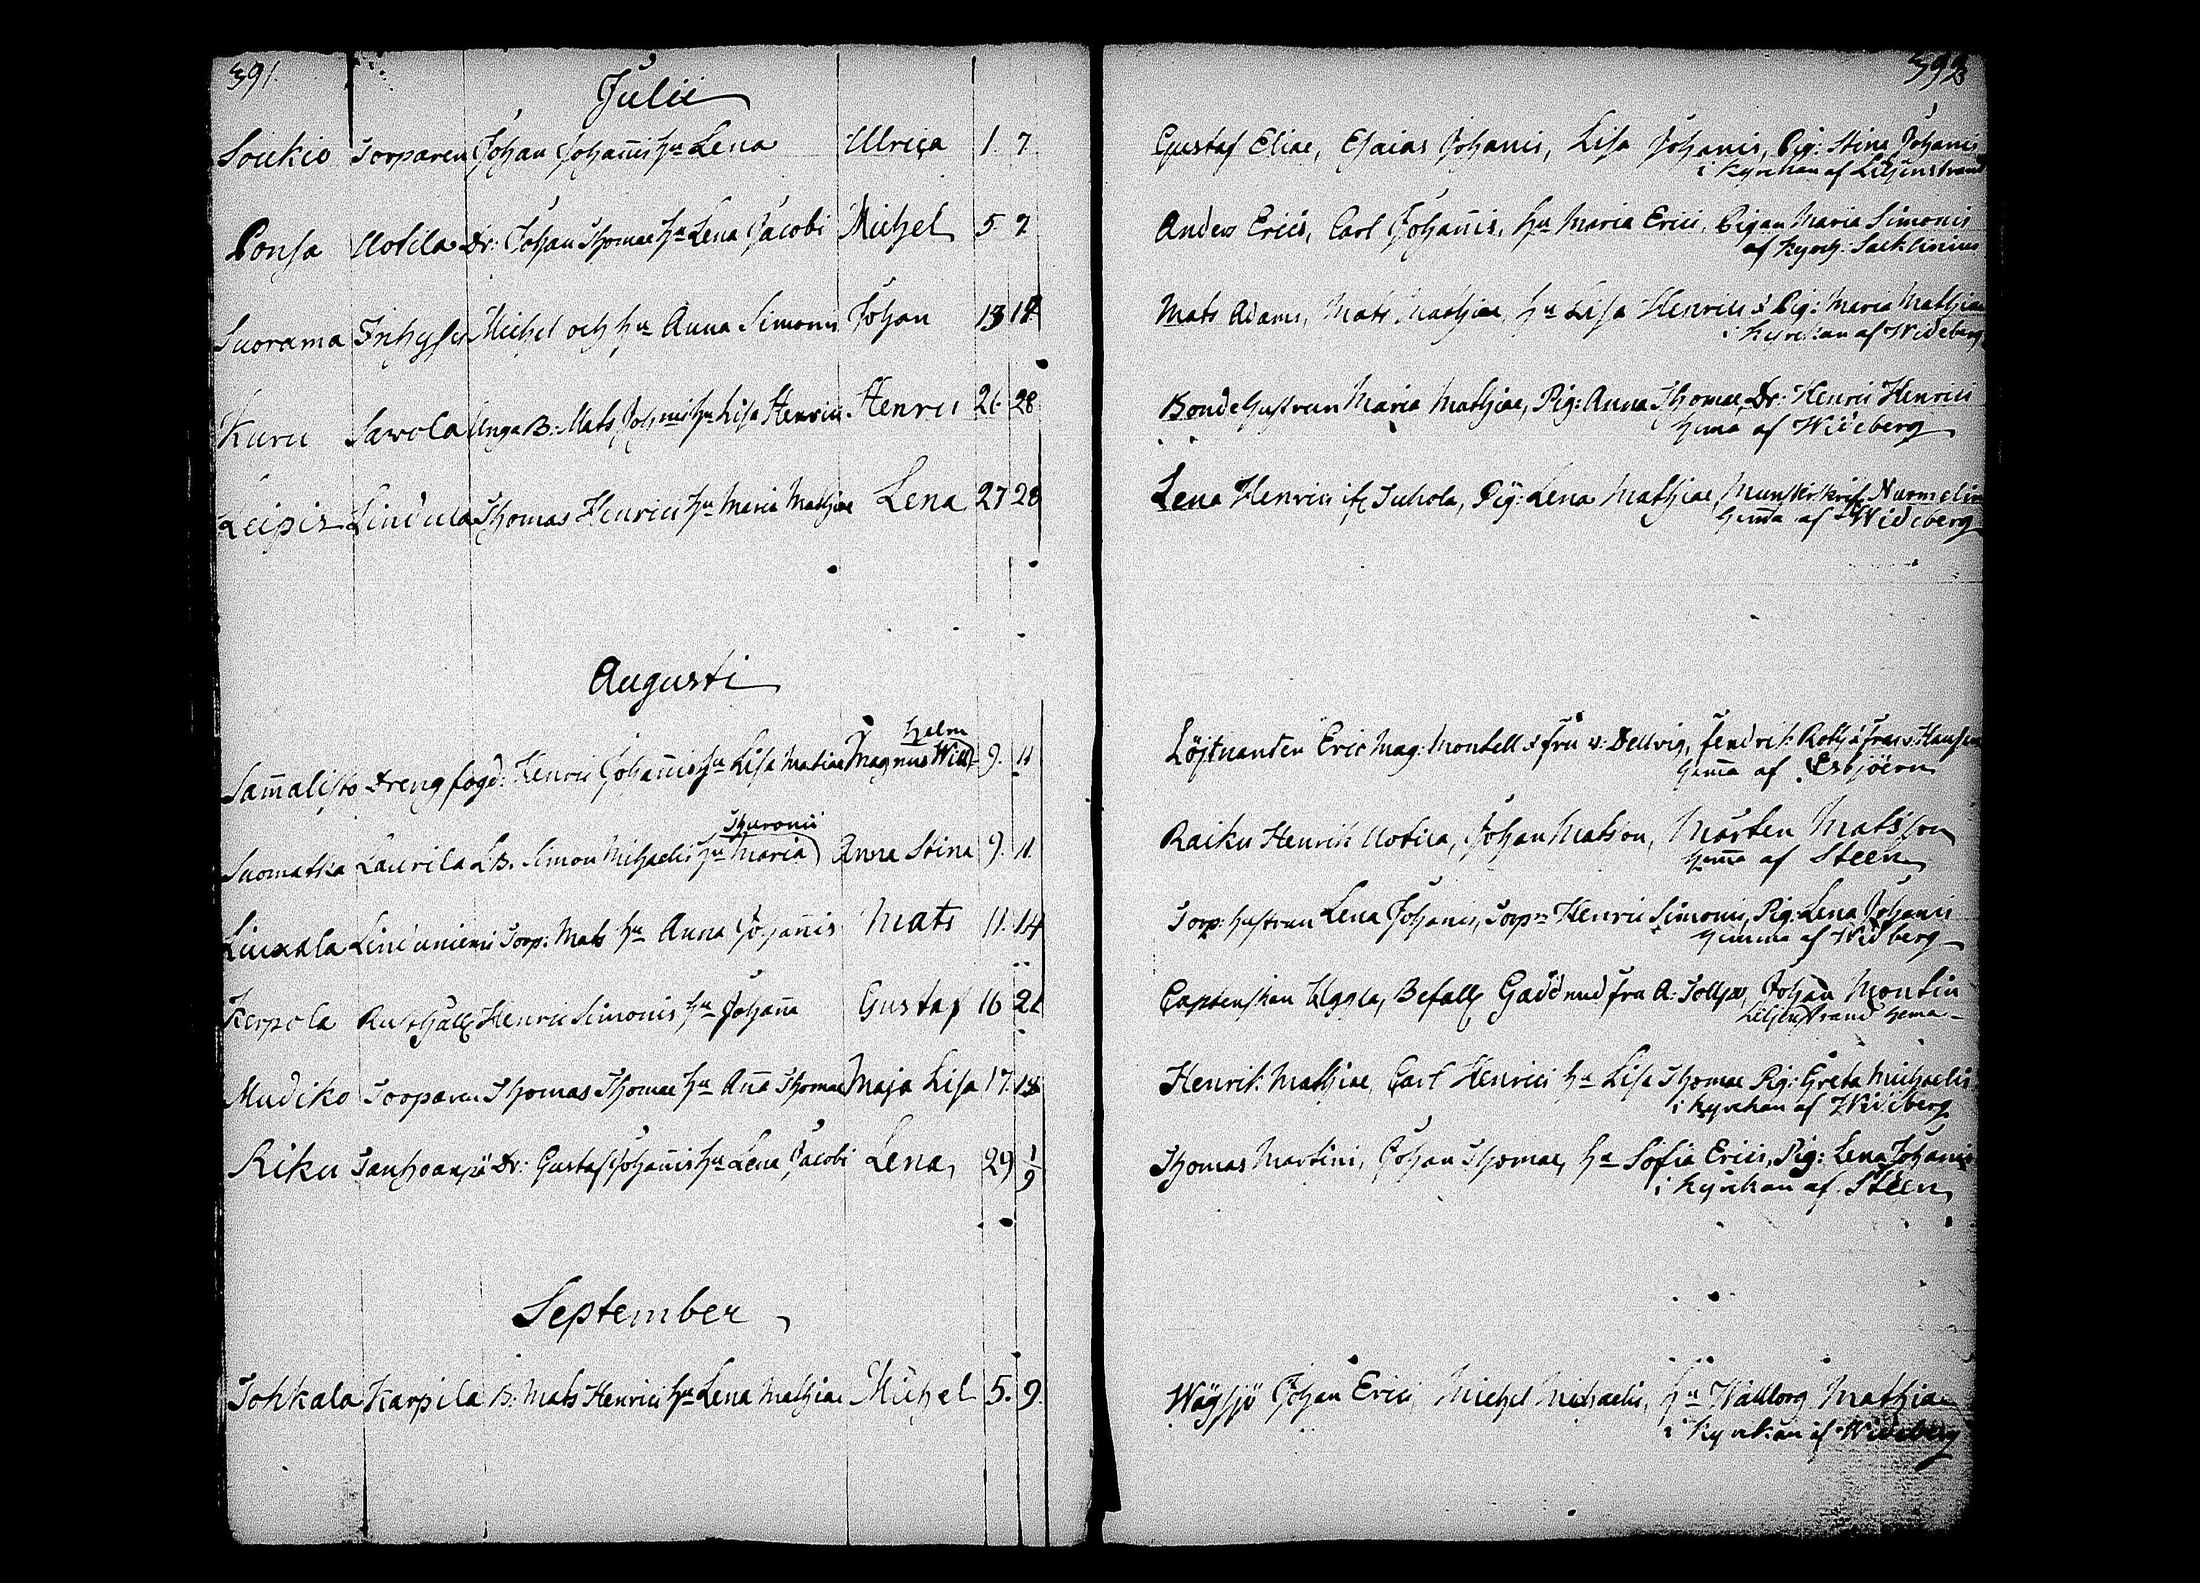 391.
Julii
Soukio Torparen Johan Johañis hu Lena Ulrica 1. 7.
Ponsa Uotila Dr: Johan Thomae hu Lena Jacobi Michel 5. 7
Suorama Inhyses Michel och hu Anna Simonis Johan 13 14
Kuru Savola Unga B: Mats Joh̃nis hu Lisa Henrici Henric 26 28
Leipis Lindula Thomas Henrici hu Maria Mathiae Lena 27 28
Augusti
helm
Sam̃alisto Drengfogd: Henric Johañis hu Lisa Matiae Magnus Wil 9. 11
Thuronii
Suomatka Laurila LB. Simon Michaelis hu Maria Anna Stina 9. 11.
Liuxala Liuxuniemi Torp: Mats hu Anna Johañis Mats 11. 14
Kerpola Rusthåll Henric Simonis hu Johañ Gustaf 16 21
Mudiko Torparen Thomas Thomae hu Añа Thomae Maja Lisa 17. 18
Riku Tanhoanpä Dr: Gustaf Johañis hu Lena Jacobi Lena, 29 1/9
September
Tohkala Karpila B: Mats Henrici hu Lena Mathiae Michel 5. 9.
392
Gustaf Eliae, Esaias Johanis, Lisa Johanis, Pig: Stina Johanis
i Kyrckan af Liljenstrand
Anders Erici, Carl Johañis, hu Maria Erici, Pigan Maria Simonis
af Kyrch: Sacklinius
Mats Adami, Mats Mathiae, hu Lisa Henrici & Pig: Maria Mathiae
i Kyrckan af Wideberg
Bonde Hustrun Maria Mathiae, Pig: Anna Thomae, Dr: Henric Henrici
hema af Wideberg
Lena Henrici ifr Juhola, Pig: Lena Mathiae, Munsterskrif Nurmelin
hem̃a af Wideberg
Löjtnanten Eric Mag: Montell & fru v: Dellvig, fendrik Roth & fru v: Hausen
hem̃a af Esbjöern
Raiku Henrik Uotila, Johan Matson, Mårten Matsson
hem̃a af Steen
Torp: hustrun Lena Johanis, Torpn Henric Simonis, Pig: Lena Johanis
hemma af Widberg
Captenskan Uggla, Befallg Gadd med fru A: Tolljn, Johan Montin
Liljenstrand hema
Henrik: Mathiae, Carl Henrici hu Lisa Thomae Pig: Greta Michaelis
i Kyrckan af Wideberg
Thomas Martini, Johan Thomae, hu Sofia Erici, Pig: Lena Johanis
i Kyrckan af Steen
Wägsjö Johan Erici Michel Michaelis, hu Wallborg Mathiae
i Kyrckan af Wideberg